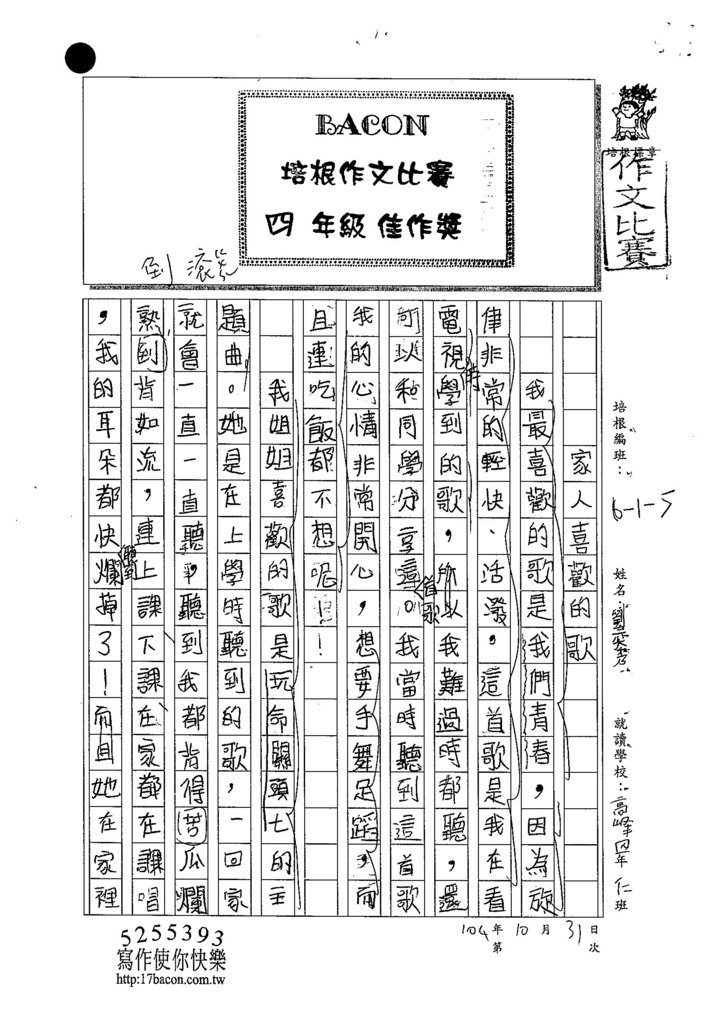 BACON
培根作文比賽
四 年級 佳作獎
培根標章
作文比賽
倒 滾
培根編班：6-1-5
姓名：劉
就讀學校：高峰四年仁班
104年10月31日
第 次
家人喜歡的歌
我最喜歡的歌是我們青春，因為旋
律非常的輕快、活潑，這首歌是我在看
電視時學到的歌，所以我難過時都聽，還
可以和同學分享這首歌。我當時聽到這首歌
我的心情非常開心，想要手舞足蹈，而
且連吃飯都不想呢！
我姐姐喜歡的歌是玩命關頭七的主
題曲。她是在上學時聽到的歌，一回家
就會一直一直聽，聽到我都背得苦瓜爛
熟到背如流，連上課下課在家都在課唱
，我的耳朵都快聽爛掉了！而且她在家裡
5255393
寫作使你快樂
http:17bacon.com.tw